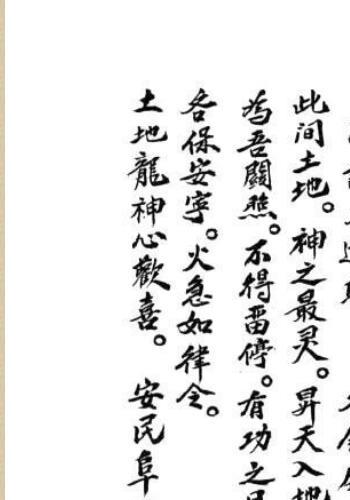 此间土地。神之最灵。昇天入地
為吾關照。不得畱停。有功之
各保安寧。火急如律令。
土地龍神心歡喜。 安民阜